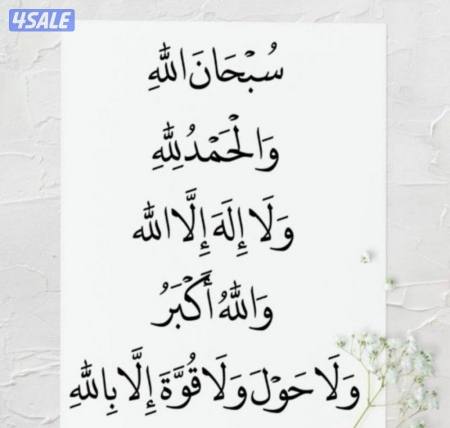 4SALE
سُبْحَانَ اللهِ
وَالْحَمْدُ لِلّٰهِ
وَلَا إِلَهَ إِلَّا اللّٰه
وَاللّٰهُ أَكْبَرُ
وَلَا حَوْلَ وَلَا قُوَّةَ إِلَّا بِاللّٰهِ